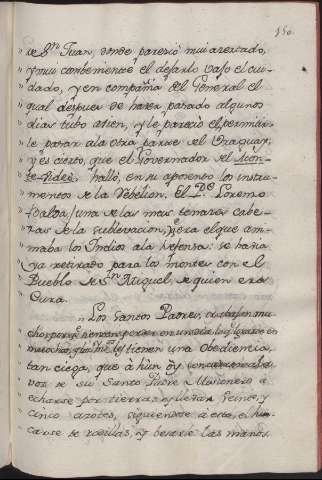 150
" de S.n Juan, donde pareció mui azertado,
" y mui combeniente el dejarlo vajo el cui-
" dado, y en compañia del General el
" qual despues de haver pasado algunos
" dias tubo a bien, y le pareció el permitir-
" le pasar ala otra parte de el Uruguay,
" y es cierto, que el Governador de Mon-
" te-Video halló en su aposento los instru-
" mentos de la Rebelion. El P.e Lorenzo
" Balda /una de las mas tenazes cabe-
" zas de la sublevacion, y era el que ani-
" maba los Indios ala defensa: se havia
" ya retirado para los montes con el
" Pueblo de S.n Miguel, de quien era
" Cura.
" Los Santos Padres, trabajen mu-
cho
tienen una Obediencia
" tan ciega, que aun oy
" voz de su Santo Padre Misionero a
" echarse por tierra, y llevan veinte, y
" cinco azotes, siguiendose a esto, el hin-
" carse de rodillas, y besarle las manos